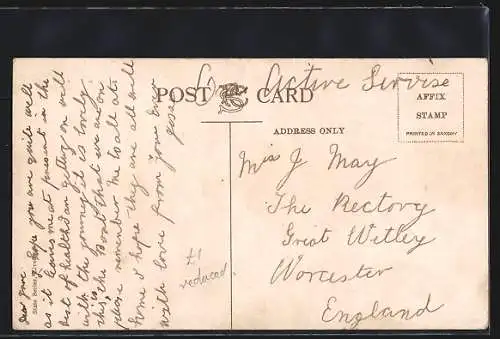 On Active Service
POST CARD
AFFIX
STAMP
PRINTED IN SAXONY
ADDRESS ONLY
Miss J May
The Rectory
Great Witley
Worcester
England
Dear
hope you are quite well
as it leaves me at present in the
best of health I am getting on well
with the it is lovely
this is the boat that we are on
please remember me to all at
home I hope they are all well
with love from your
Jess
State Series